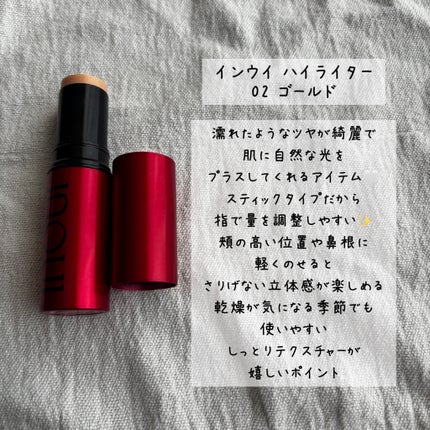 インウイ ハイライター
02 ゴールド
濡れたようなツヤが綺麗で
肌に自然な光を
プラスしてくれるアイテム
スティックタイプだから
指で量を調整しやすい✨
頬の高い位置や鼻根に
軽くのせると
さりげない立体感が楽しめる
乾燥が気になる季節でも
使いやすい
しっとりテクスチャーが
嬉しいポイント
inoui